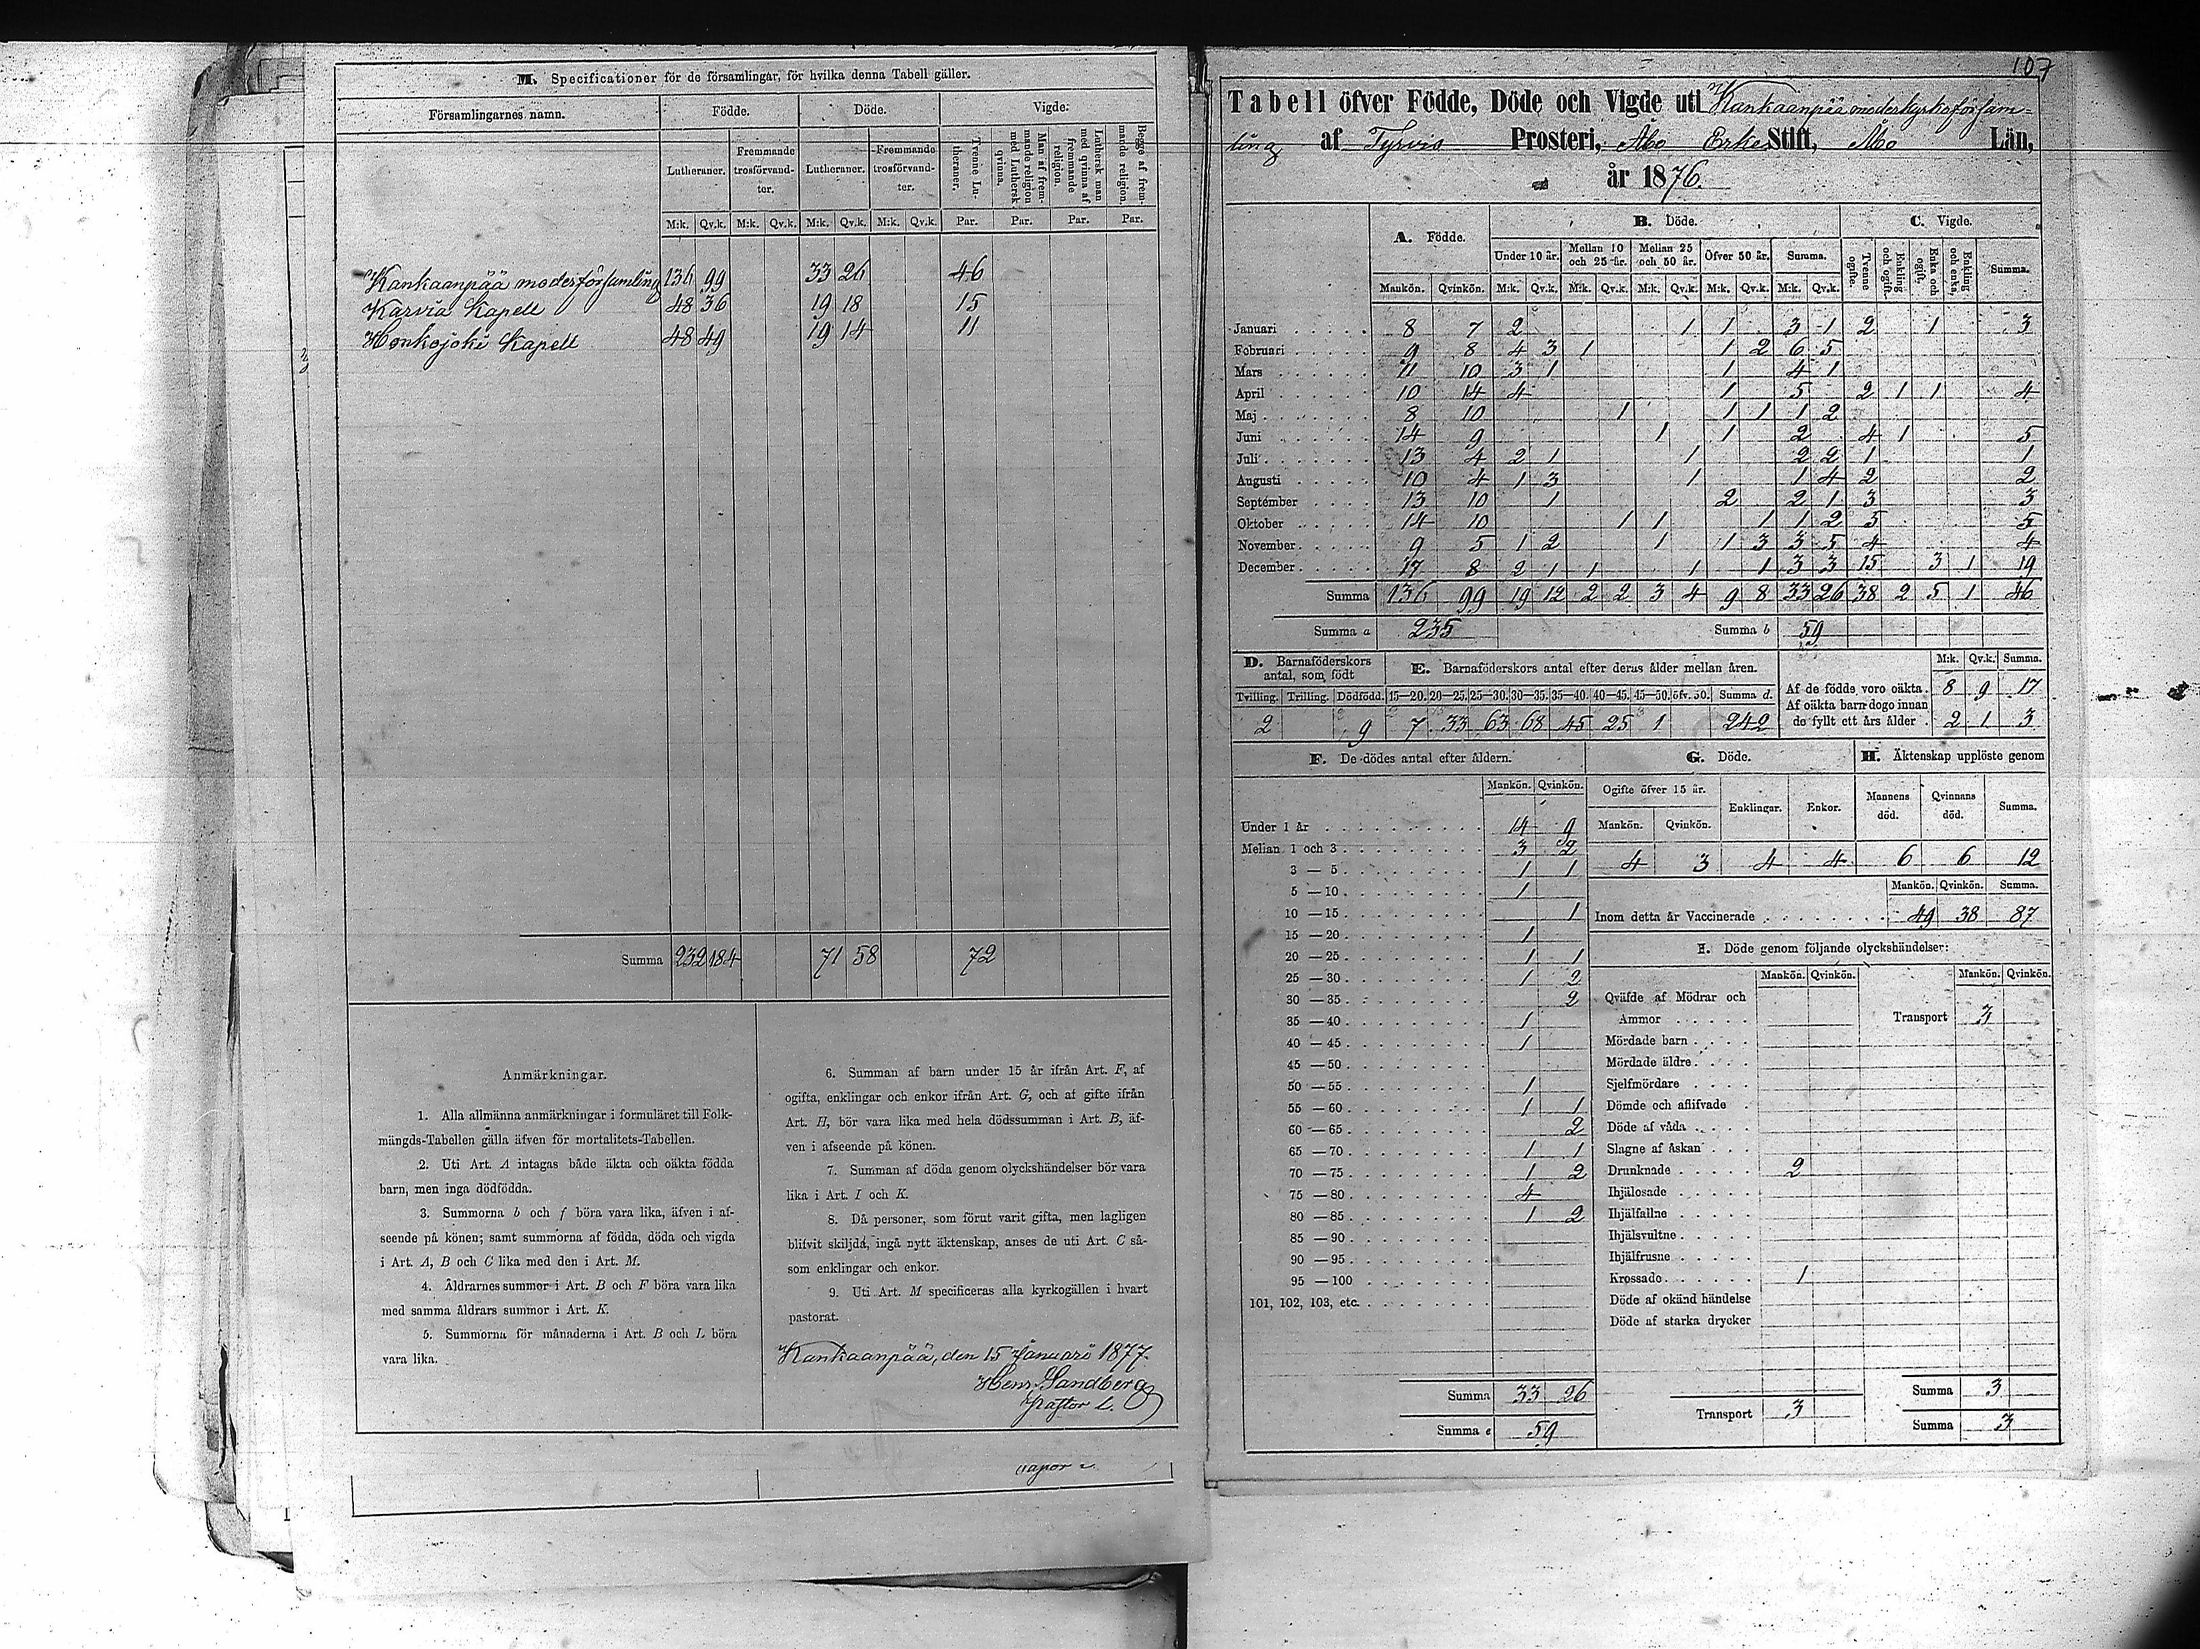 M. Specificationer för de församlingar, för hvilka denna Tabell gäller.
Församlingarnes namn. Födde. Döde. Vigde.
Lutheraner. Fremmande trosförvandter. Lutheraner. Fremmande trosförvandter. Tvenne Lutheraner. Man af fremmande religion med Luthersk qvinna. Luthersk man med qvinna af fremmande religion. Begge af fremmande religion.
M:k. Qv.k. M:k. Qv.k. M:k. Qv.k. M:k. Qv.k. Par. Par. Par. Par.
Kankaanpää moderförsamling 136 99 33 26 46
Karvia Kapell 48 36 19 18 15
Honkojoki Kapell 48 49 19 14 11
Summa 232 184 71 58 72
Anmärkningar.
1. Alla allmänna anmärkningar i formuläret till Folk-
mängds-Tabellen gälla äfven för mortalitets-Tabellen.
2. Uti Art. A intagas både äkta och oäkta födda
barn, men inga dödfödda.
3. Summorna b och f böra vara lika, äfven i af-
seende på könen; samt summorna af födda, döda och vigda
i Art. A, B och C lika med den i Art. M.
4. Åldrarnes summor i Art. B och F böra vara lika
med samma åldrars summor i Art. K.
5. Summorna för månaderna i Art. B och L böra
vara lika.
6. Summan af barn under 15 år ifrån Art. F, af
ogifta, enklingar och enkor ifrån Art. G, och af gifte ifrån
Art. H, bör vara lika med hela dödssumman i Art. B, äf-
ven i afseende på könen.
7. Summan af döda genom olyckshändelser bör vara
lika i Art. I och K.
8. Då personer, som förut varit gifta, men lagligen
blifvit skiljda, ingå nytt äktenskap, anses de uti Art. C så-
som enklingar och enkor.
9. Uti Art. M specificeras alla kyrkogällen i hvart
pastorat.
Kankaanpää, den 15 Januari 1877.
Henr. Sandberg
Pastor L.
107
Tabell öfver Födde, Döde och Vigde uti Kankaanpää moderkyrkoförsam-
ling af Tyrvis Prosteri, Åbo Erke Stift, Åbo Län,
år 1876.
A. Födde. B. Döde. C. Vigde.
Under 10 år. Mellan 10 och 25 år. Mellan 25 och 50 år. Öfver 50 år. Summa. Tvenne ogifte. Enkling och ogift. Enka och ogift. Enkling och enka. Summa.
Mankön. Qvinkön. M:k. Qv.k. M:k. Qv.k. M:k. Qv.k. M:k. Qv.k. M:k. Qv.k.
Januari 8 7 2 1 1 3 1 2 1 3
Februari 9 8 4 3 1 1 2 6 5
Mars 11 10 3 1 1 4 1
April 10 14 4 1 5 2 1 1 4
Maj 8 10 1 1 1 1 2
Juni 14 9 1 1 2 4 1 5
Juli 13 4 2 1 1 2 2 1 1
Augusti 10 4 1 3 1 1 4 2 2
September 13 10 1 2 2 1 3 3
Oktober 14 10 1 1 1 1 2 5 5
November 9 5 1 2 1 1 3 3 5 4 4
December 17 8 2 1 1 1 1 3 3 15 3 1 19
Summa 136 99 19 12 2 2 3 4 9 8 33 26 38 2 5 1 46
Summa a 235 Summa b 59
D. Barnaföderskors antal, som födt
Tvilling. Trilling. Dödfödd.
2 9
E. Barnaföderskors antal efter deras ålder mellan åren.
15—20. 20—25. 25—30. 30—35. 35—40. 40—45. 45—50. öfv. 50. Summa d.
7 33 63 68 45 25 1 242
M:k. Qv.k. Summa.
Af de födde voro oäkta 8 9 17
Af oäkta barn dogo innan
de fyllt ett års ålder 2 1 3
F. De dödes antal efter åldern.
Mankön. Qvinkön.
Under 1 år 14 9
Mellan 1 och 3 3 2
3 — 5 1 1
5 — 10 1
10 — 15 1
15 — 20 1
20 — 25 1 1
25 — 30 1 2
30 — 35 2
35 — 40 1
40 — 45 1
45 — 50
50 — 55 1
55 — 60 1 1
60 — 65 2
65 — 70 1 1
70 — 75 1 2
75 — 80 4
80 — 85 1 2
85 — 90
90 — 95
95 — 100
101, 102, 103, etc.
Summa 33 26
Summa e 59
G. Döde.
Ogifte öfver 15 år. Enklingar. Enkor.
Mankön. Qvinkön.
4 3 4 4
H. Äktenskap upplöste genom
Mannens död. Qvinnans död. Summa.
6 6 12
Mankön. Qvinkön. Summa.
Inom detta år Vaccinerade 49 38 87
I. Döde genom följande olyckshändelser:
Mankön. Qvinkön. Mankön. Qvinkön.
Qväfde af Mödrar och
Ammor Transport 3
Mördade barn
Mördade äldre
Sjelfmördare
Dömde och aflifvade
Döde af våda
Slagne af åskan
Drunknade 2
Ihjälosade
Ihjälfallne
Ihjälsvultne
Ihjälfrusne
Krossade 1
Döde af okänd händelse
Döde af starka drycker
Transport 3
Summa 3
Summa 3